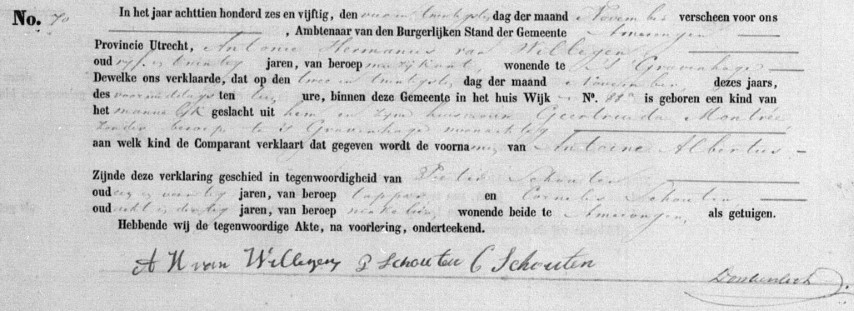 No. 70 In het jaar achttien honderd zes en vijftig, den twintigste dag der maand November verscheen voor ons
, Ambtenaar van den Burgerlijken Stand der Gemeente Amerongen
Provincie Utrecht, Antonie Hermanus van Willegen
oud vijf en twintig jaren, van beroep muzijkant, wonende te 's Gravenhage
Dewelke ons verklaarde, dat op den twee en twintigste dag der maand November dezes jaars,
des voormiddags ten ure, binnen deze Gemeente in het huis Wijk No. 11 is geboren een kind van
het mannelijk geslacht uit hem en zijne huisvrouw Geertruida Montrée
zonder beroep te 's Gravenhage woonachtig
aan welk kind de Comparant verklaart dat gegeven wordt de voornamen van Antoine Albertus
Zijnde deze verklaring geschied in tegenwoordigheid van Pieter Schouten
oud en veertig jaren, van beroep tapper en Cornelis Schouten
oud acht en dertig jaren, van beroep wonende beide te Amerongen, als getuigen.
Hebbende wij de tegenwoordige Akte, na voorlezing, onderteekend.
A H van Willegen P Schouten C Schouten